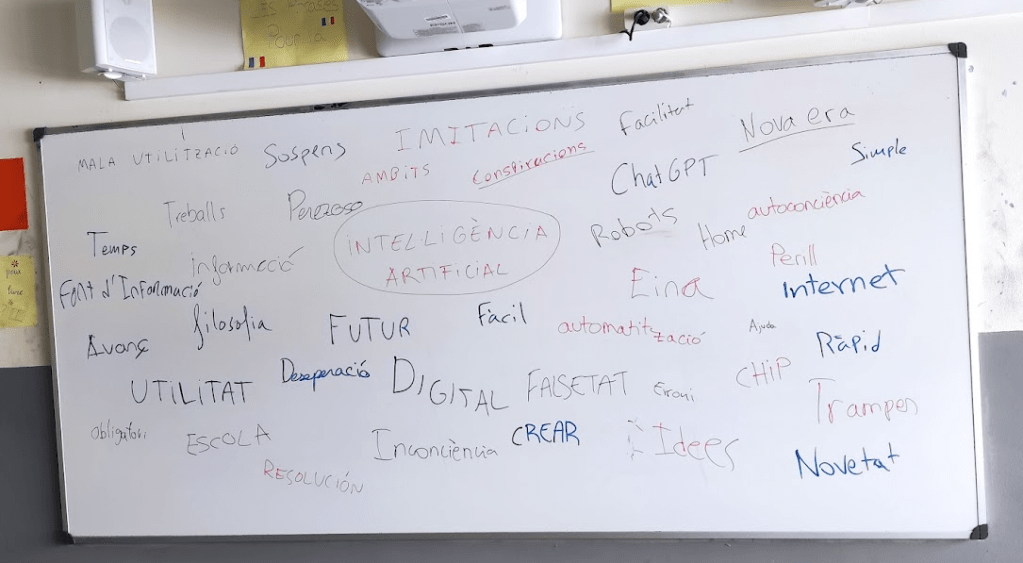 Pour la
MALA UTILITZACIÓ
Sospens
IMITACIONS
Facilitat
Nova era
ÀMBITS
Conspiracions
ChatGPT
Simple
Treballs
Perezoso
INTEL·LIGÈNCIA
ARTIFICIAL
Robots
Home
autoconciència
Temps
informcció
Perill
Font d'Informació
Eina
Internet
filosofia
FUTUR
Fàcil
automatització
Ajuda
Avanç
Ràpid
UTILITAT
Deseperació
DIGITAL
FALSETAT
Erroni
CHIP
Trampes
Obligatori
ESCOLA
Inconciència
CREAR
Idees
Novetat
RESOLUCIÓN